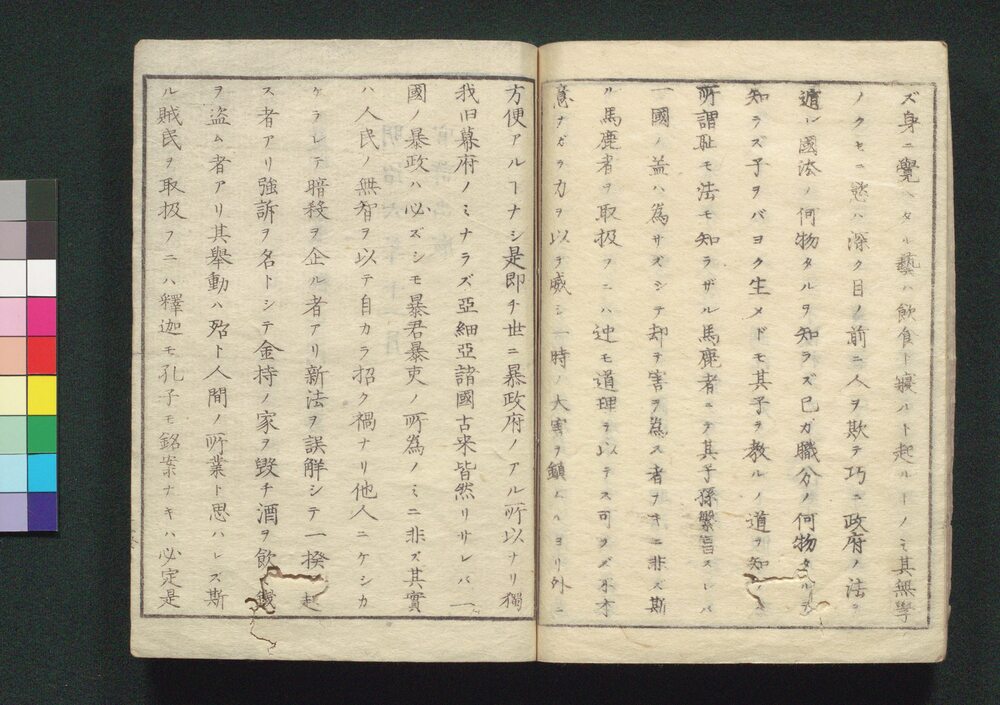 ズ身ニ覺ヘタル藝ハ飲食ト寢ルト起ルトノミ其無學
ノクセニ慾ハ深ク目ノ前ニ人ヲ欺テ巧ニ政府ノ法ヲ
遁レ國法ノ何物タルヲ知ラズ己ガ職分ノ何物タルヲ
知ラズ子ヲバヨク生メドモ其子ヲ教ルノ道ヲ知ラズ
所謂耻モ法モ知ラザル馬鹿者ニテ其子孫繁昌スレバ
一國ノ益ハ為サズシテ却テ害ヲ為ス者ナキニ非ズ斯
ル馬鹿者ヲ取扱フニハ迚モ道理ヲ以テス可ラズ不本
意ナガラ力ヲ以テ威シ一時ノ大害ヲ鎮ムルヨリ外ニ
方便アルヿナシ是即チ世ニ暴政府ノアル所以ナリ獨
我旧幕府ノミナラズ亞細亞諸國古来皆然リサレバ一
國ノ暴政ハ必ズシモ暴君暴吏ノ所為ノミニ非ズ其實
ハ人民ノ無智ヲ以テ自カラ招ク禍ナリ他人ニケシカ
ケラレテ暗殺ヲ企ル者アリ新法ヲ誤解シテ一揆ヲ起
ス者アリ強訴ヲ名トシテ金持ノ家ヲ毀チ酒ヲ飲ミ銭
ヲ盗ム者アリ其舉動ハ殆ト人間ノ所業ト思ハレズ斯
ル賊民ヲ取扱フニハ釋迦モ孔子モ銘案ナキハ必定是